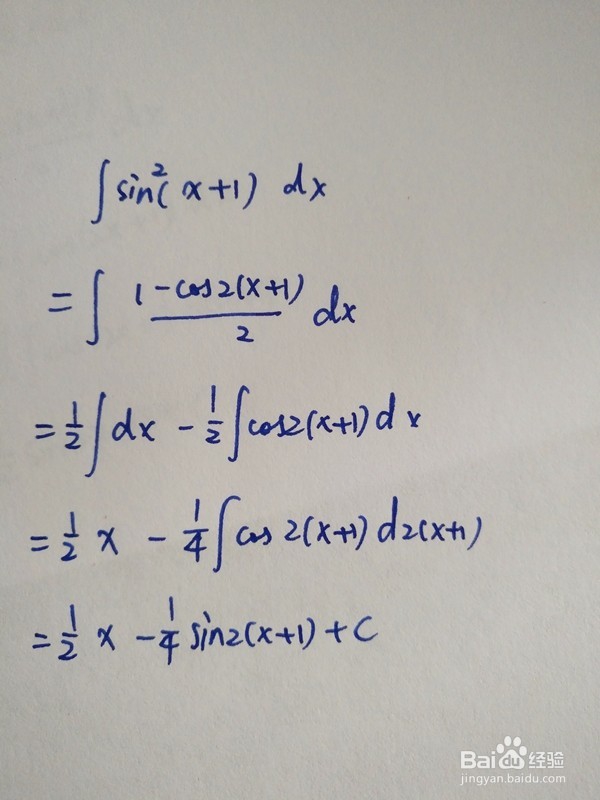 ∫ sin²(x+1) dx
= ∫ (1-cos2(x+1))/2 dx
= 1/2 ∫ dx - 1/2 ∫ cos2(x+1) dx
= 1/2 x - 1/4 ∫ cos 2(x+1) d2(x+1)
= 1/2 x - 1/4 sin2(x+1) + C
Baidu经验
jingyan.baidu.com